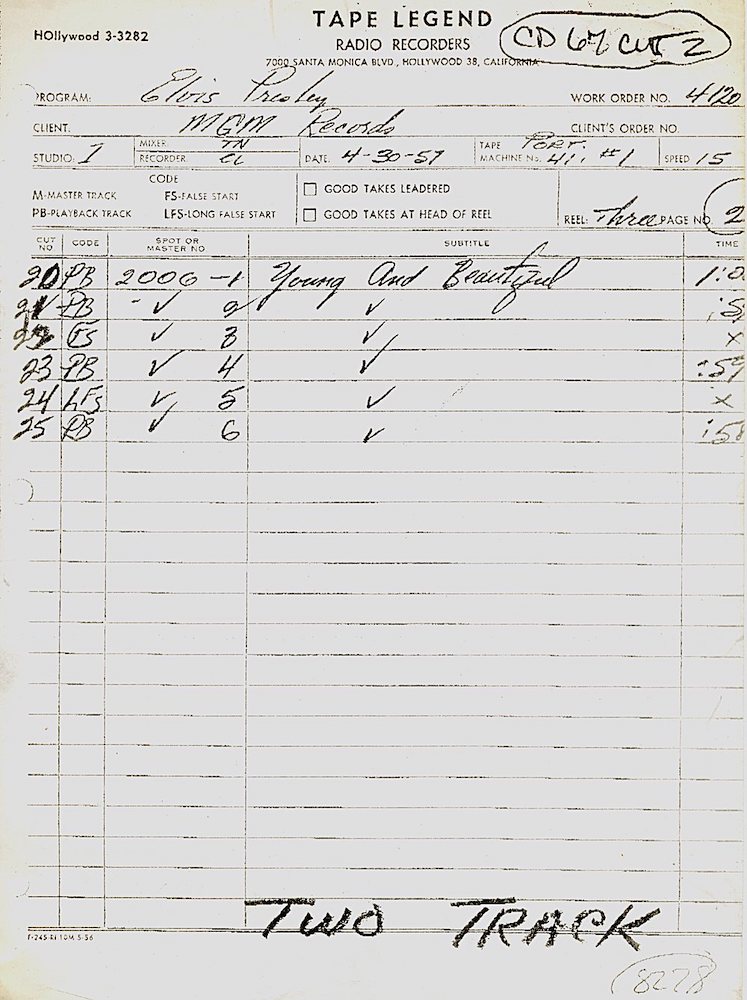 TAPE LEGEND
HOllywood 3-3282
RADIO RECORDERS
CD 67 CUT 2
7000 SANTA MONICA BLVD., HOLLYWOOD 38, CALIFORNIA
PROGRAM: Elvis Presley WORK ORDER NO. 4120
CLIENT. MGM Records CLIENT'S ORDER NO.
STUDIO: 1 MIXER TN RECORDER CL DATE. 4-30-57 TAPE MACHINE No. PORT. 411 #1 SPEED 15
CODE
M-MASTER TRACK FS-FALSE START ☐ GOOD TAKES LEADERED
PB-PLAYBACK TRACK LFS-LONG FALSE START ☐ GOOD TAKES AT HEAD OF REEL REEL: Three PAGE NO. 2
CUT NO. CODE SPOT OR MASTER NO SUBTITLE TIME
20 PB 2006 -1 Young And Beautiful 1:0
21 PB -✓ 2 ✓ :5
22 FS ✓ 3 ✓ X
23 PB ✓ 4 ✓ :59
24 LFS ✓ 5 ✓ X
25 PB ✓ 6 ✓ :58
TWO TRACK
F-245-RI 10M 5-56
8278